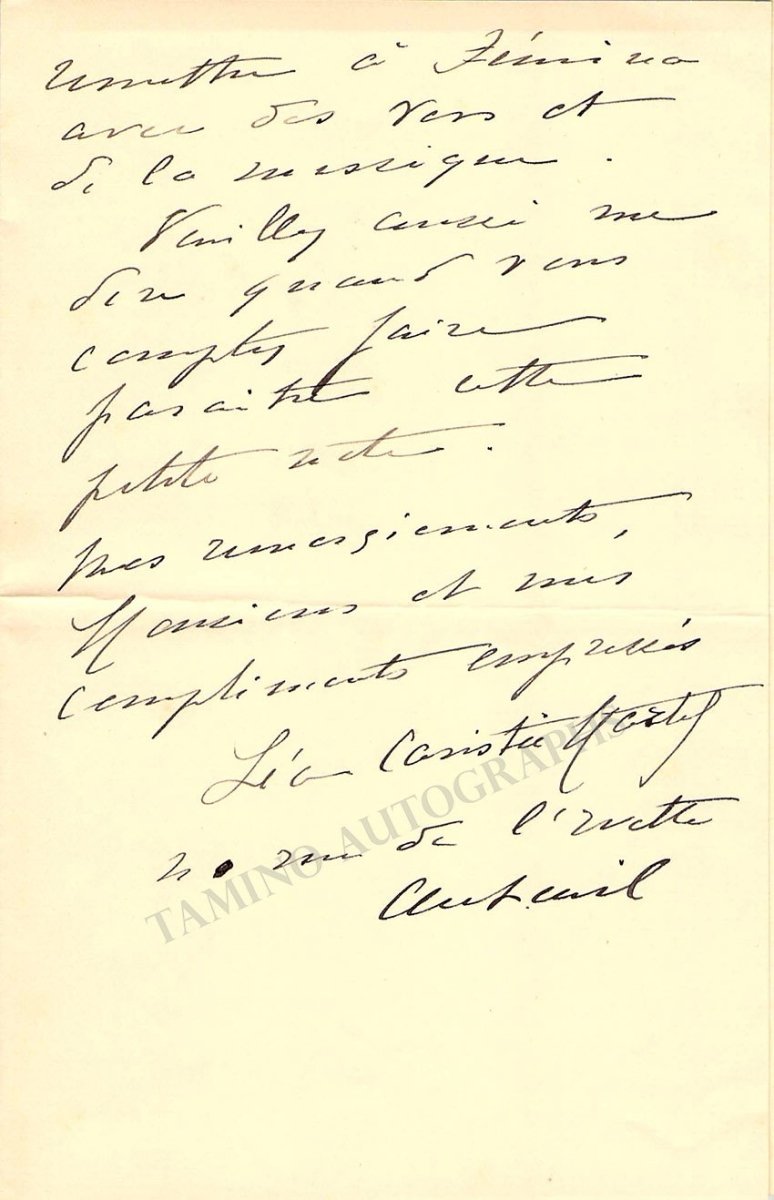 remettre à Fémina
avec des vers et
de la musique.
Veuillez aussi me
dire quand vous
comptez faire
paraître cette
petite note.
Mes remerciements,
Monsieur et mes
compliments empressés
Léa Caristie Martel
rue de l'Yvette
Auteuil
TAMINO AUTOGRAPHS